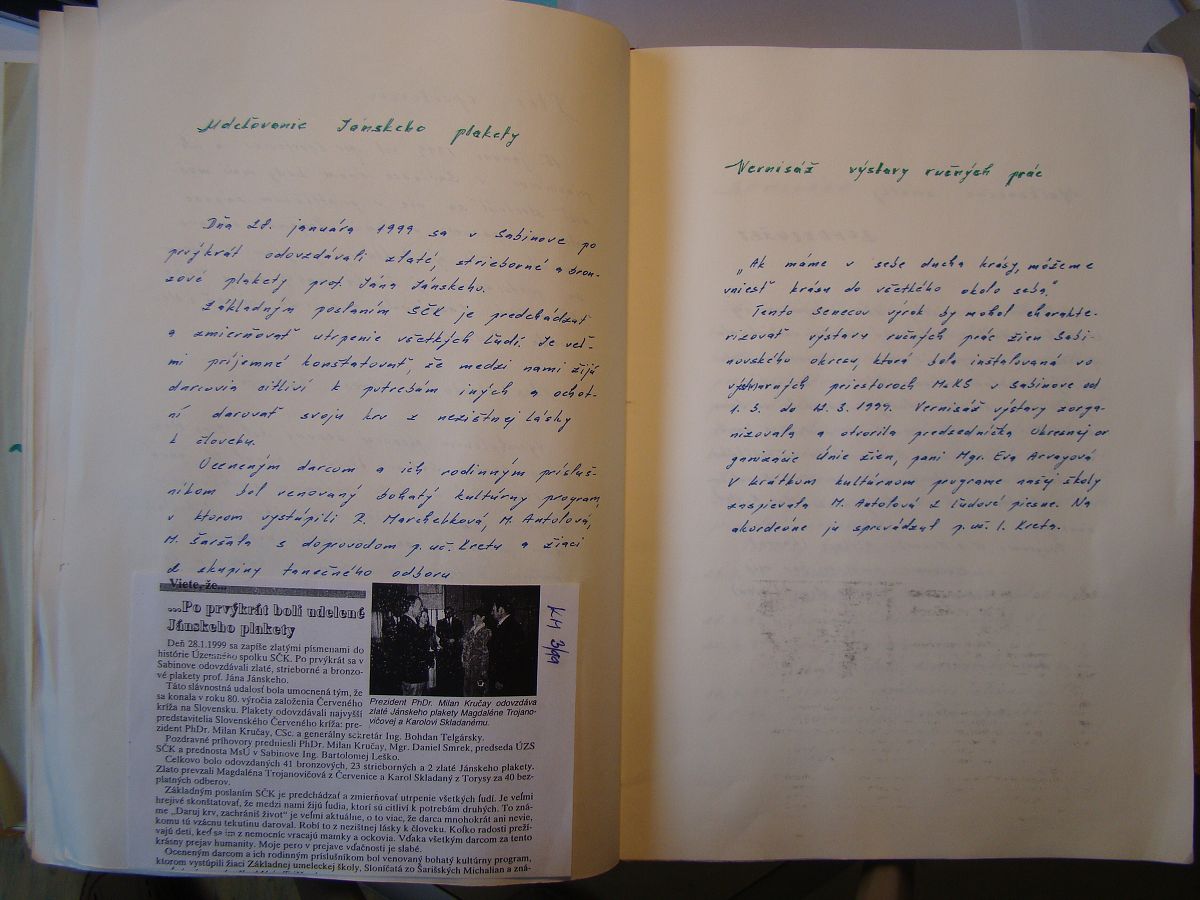 Udeľovanie Jánskeho plakety
Dňa 28. januára 1999 sa v Sabinove po
prvýkrát odovzdávali zlaté, strieborné a bron-
zové plakety prof. Jána Jánskeho.
Základným poslaním SČK je predchádzať
a zmierňovať utrpenie všetkých ľudí. Je veľ-
mi príjemné konštatovať, že medzi nami žijú
darcovia citliví k potrebám iných a ochot-
ní darovať svoju krv z nezištnej lásky
k človeku.
Oceneným darcom a ich rodinným prísluš-
níkom bol venovaný bohatý kultúrny program,
v ktorom vystúpili R. Marchebková, M. Antolová,
M. Šaršala s doprovodom p. uč. Kretu a žiaci
z skupiny tanečného odboru
Viete, že...
...Po prvýkrát boli udelené
Jánskeho plakety
Deň 28.1.1999 sa zapíše zlatými písmenami do
histórie Územného spolku SČK. Po prvýkrát sa v
Sabinove odovzdávali zlaté, strieborné a bronzo-
vé plakety prof. Jána Jánskeho.
Táto slávnostná udalosť bola umocnená tým, že
sa konala v roku 80. výročia založenia Červeného
kríža na Slovensku. Plakety odovzdávali najvyšší
predstavitelia Slovenského Červeného kríža: pre-
zident PhDr. Milan Kručay, CSc. a generálny sekretár Ing. Bohdan Telgársky.
Pozdravné príhovory predniesli PhDr. Milan Kručay, Mgr. Daniel Smrek, predseda ÚZS
SČK a prednosta MsÚ v Sabinove Ing. Bartolomej Leško.
Celkovo bolo odovzdaných 41 bronzových, 23 strieborných a 2 zlaté Jánskeho plakety.
Zlato prevzali Magdaléna Trojanovičová z Červenice a Karol Skladaný z Torysy za 40 bez-
platných odberov.
Základným poslaním SČK je predchádzať a zmierňovať utrpenie všetkých ľudí. Je veľmi
hrejivé skonštatovať, že medzi nami žijú ľudia, ktorí sú citliví k potrebám druhých. To zná-
me „Daruj krv, zachrániš život" je veľmi aktuálne, o to viac, že darca mnohokrát ani nevie,
komu tú vzácnu tekutinu daroval. Robí to z nezištnej lásky k človeku. Koľko radosti preží-
vajú deti, keď sa im z nemocníc vracajú mamky a ockovia. Vďaka všetkým darcom za tento
krásny prejav humanity. Moje pero v prejave vďačnosti je slabé.
Oceneným darcom a ich rodinným príslušníkom bol venovaný bohatý kultúrny program,
ktorom vystúpili žiaci Základnej umeleckej školy, Sloničatá zo Šarišských Michalian a zná-
Prezident PhDr. Milan Kručay odovzdáva
zlaté Jánskeho plakety Magdaléne Trojano-
vičovej a Karolovi Skladanému.
KH 3/99
Vernisáž výstavy ručných prác
„Ak máme v sebe ducha krásy, môžeme
vniesť krásu do všetkého okolo seba."
Tento Senecov výrok by mohol charakte-
rizovať výstavy ručných prác žien Sabi-
novského okresu, ktorá bola inštalovaná vo
výstavných priestoroch MsKS v Sabinove od
1. 3. do 12. 3. 1999. Vernisáž výstavy zorga-
nizovala a otvorila predsedníčka Okresnej or
ganizácie Únie žien, pani Mgr. Eva Arvayová
V krátkom kultúrnom programe našej školy
zaspievala M. Antolová 2 ľudové piesne. Na
akordeóne ju sprevádzal p. uč. I. Kreta.